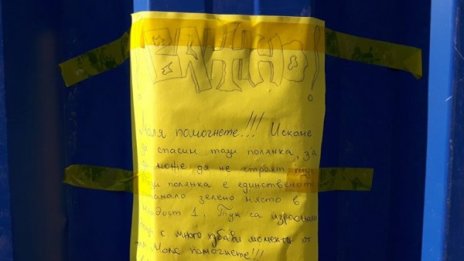 ВАЖНО!
Моля помогнете!!! Искаме
да спасим тази полянка, за
да може да не строят тук
тази полянка е единственото
останало зелено място в
Младост 1. Тук са израснали
с много хубави моменти от
Моля помогнете!!!